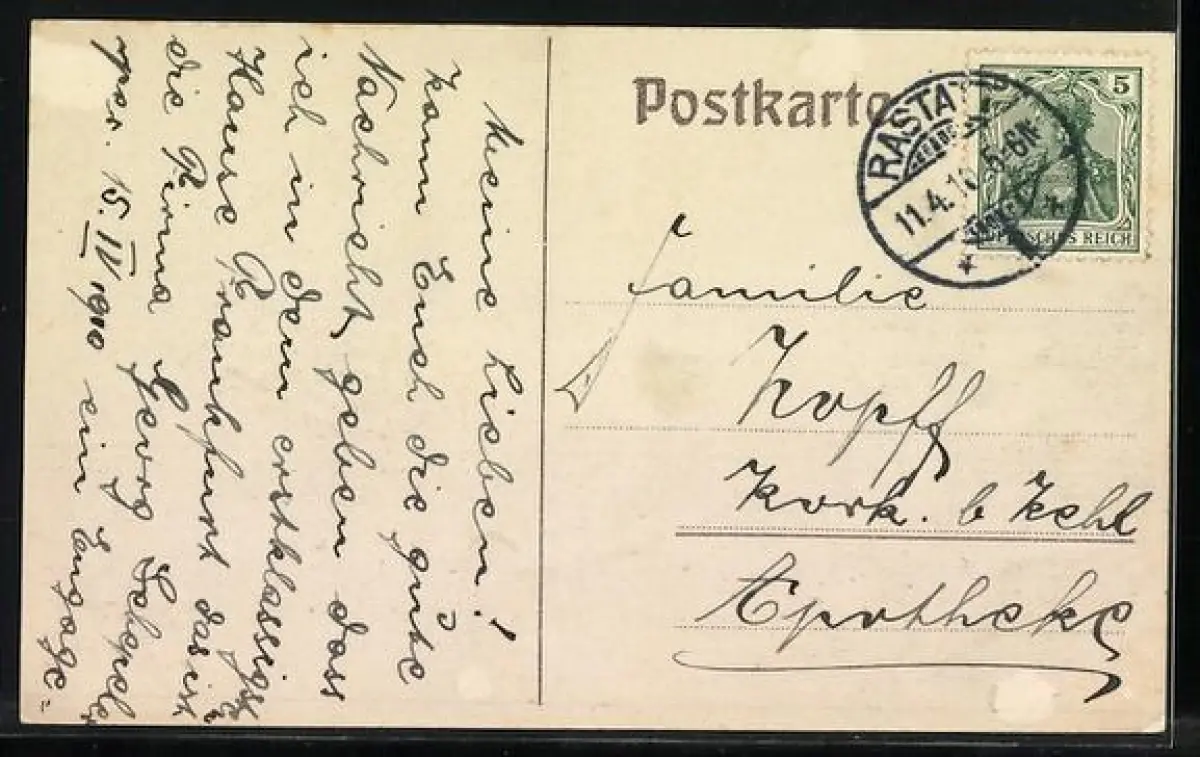 Meine Lieben!
Kann Euch die gute
Nachricht geben dass
ich in dem erstklassigst
Hause Frankfurt das ist
die Firma Georg Schepeler
per. 15. IV 1910 ein Engage=
Postkarte
RASTATT
11.4.10. 5-6N.
5
DEUTSCHES REICH
Familie
Kopff
Kork. b Kehl
Apotheke